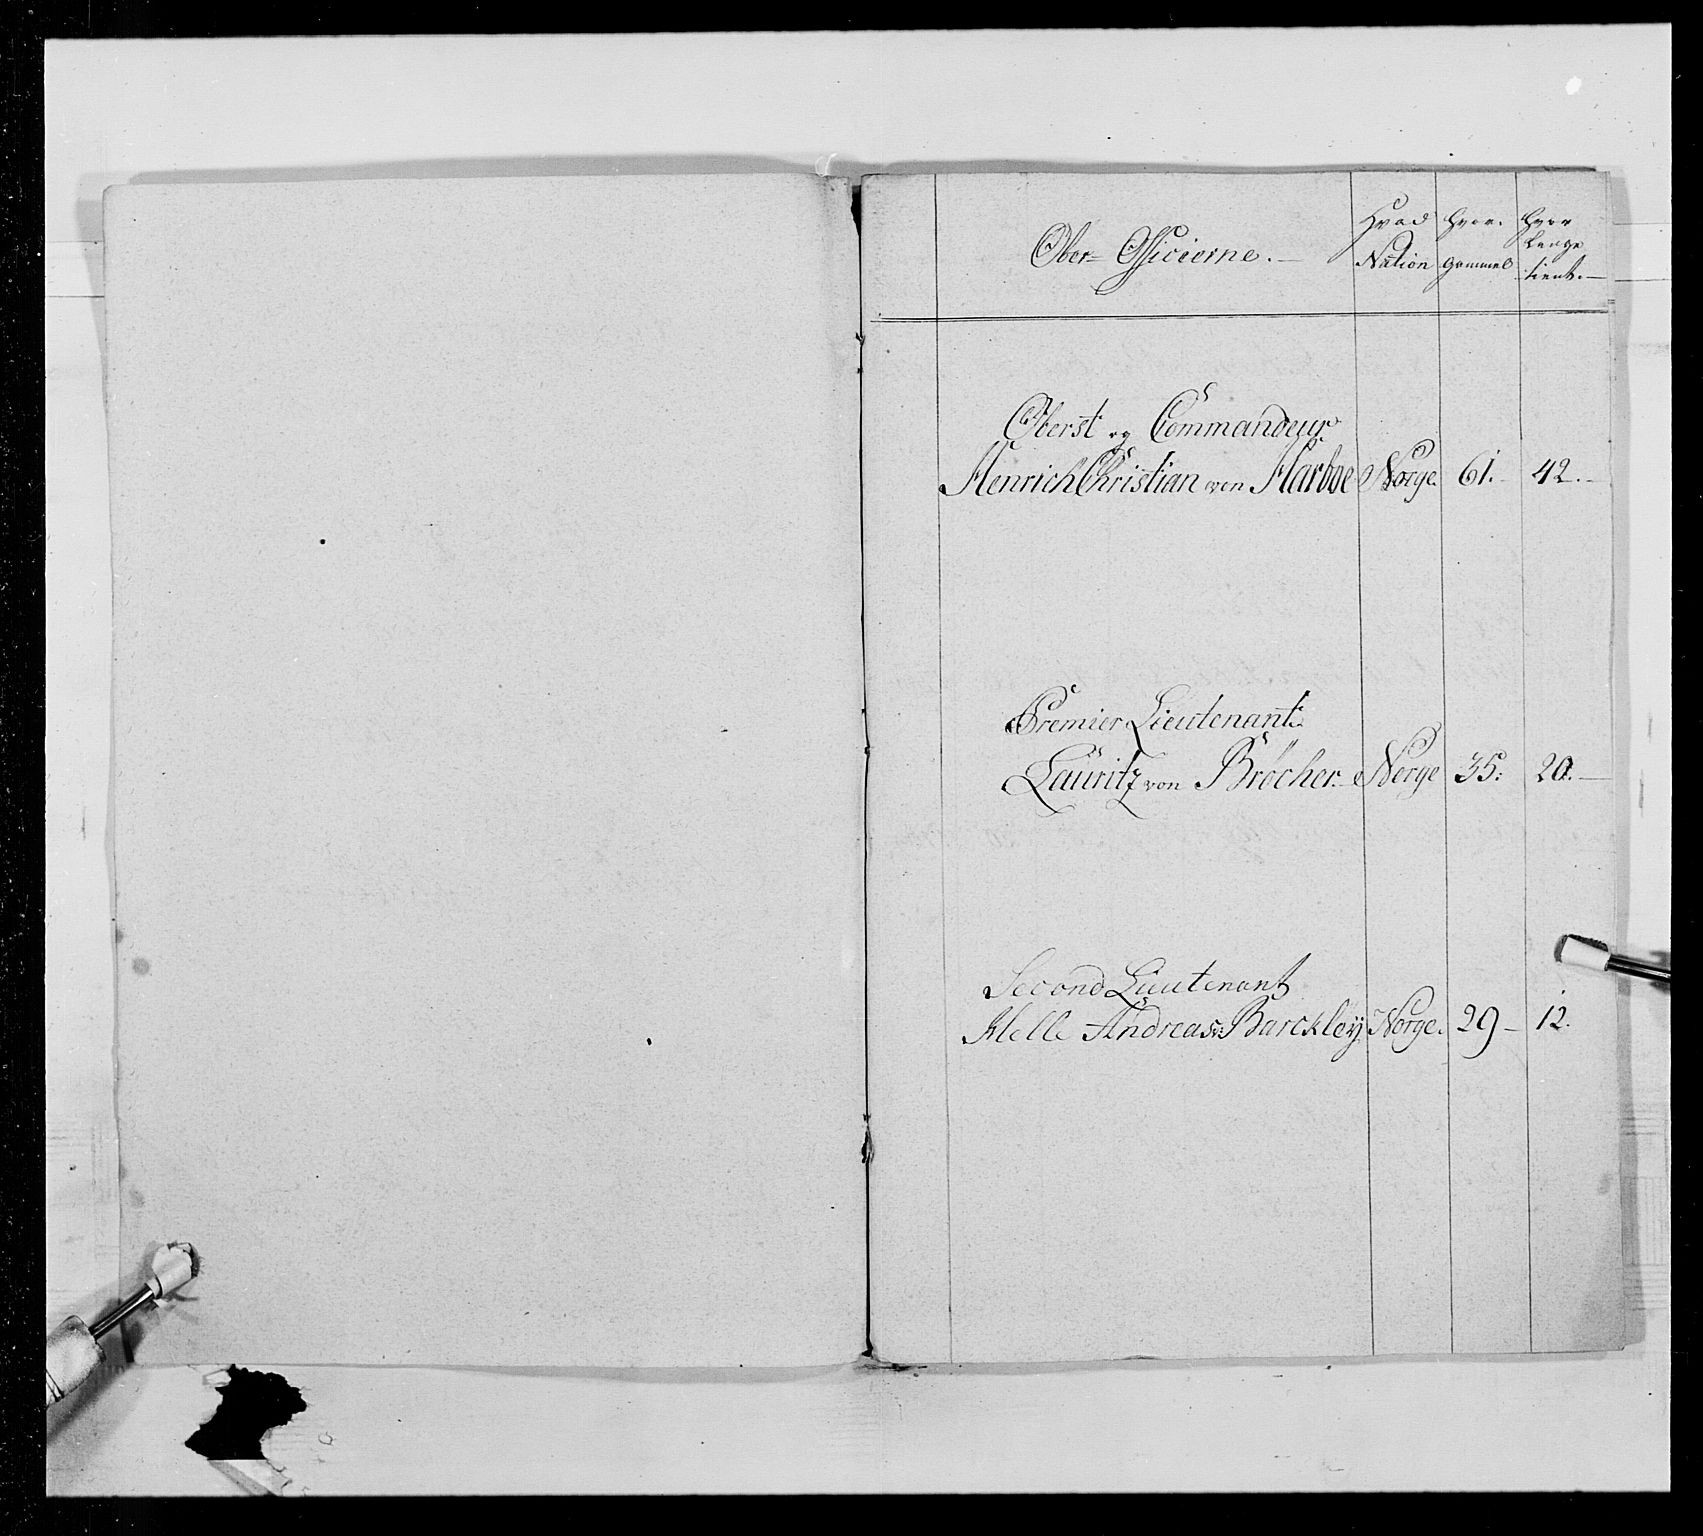 Ober= Officierne. —
Hvad Nation
hvor gammel
hvor længe tient. —
Oberst og Commandeur
Henrich Christian von Harboe Norge. 61. - 42. -
Premier Lieutenant
Lauritz von Bröcher. Norge 35: 20. —
Second Lieutenant
Melle Andreas v: Barckley. Norge. 29 - 12.